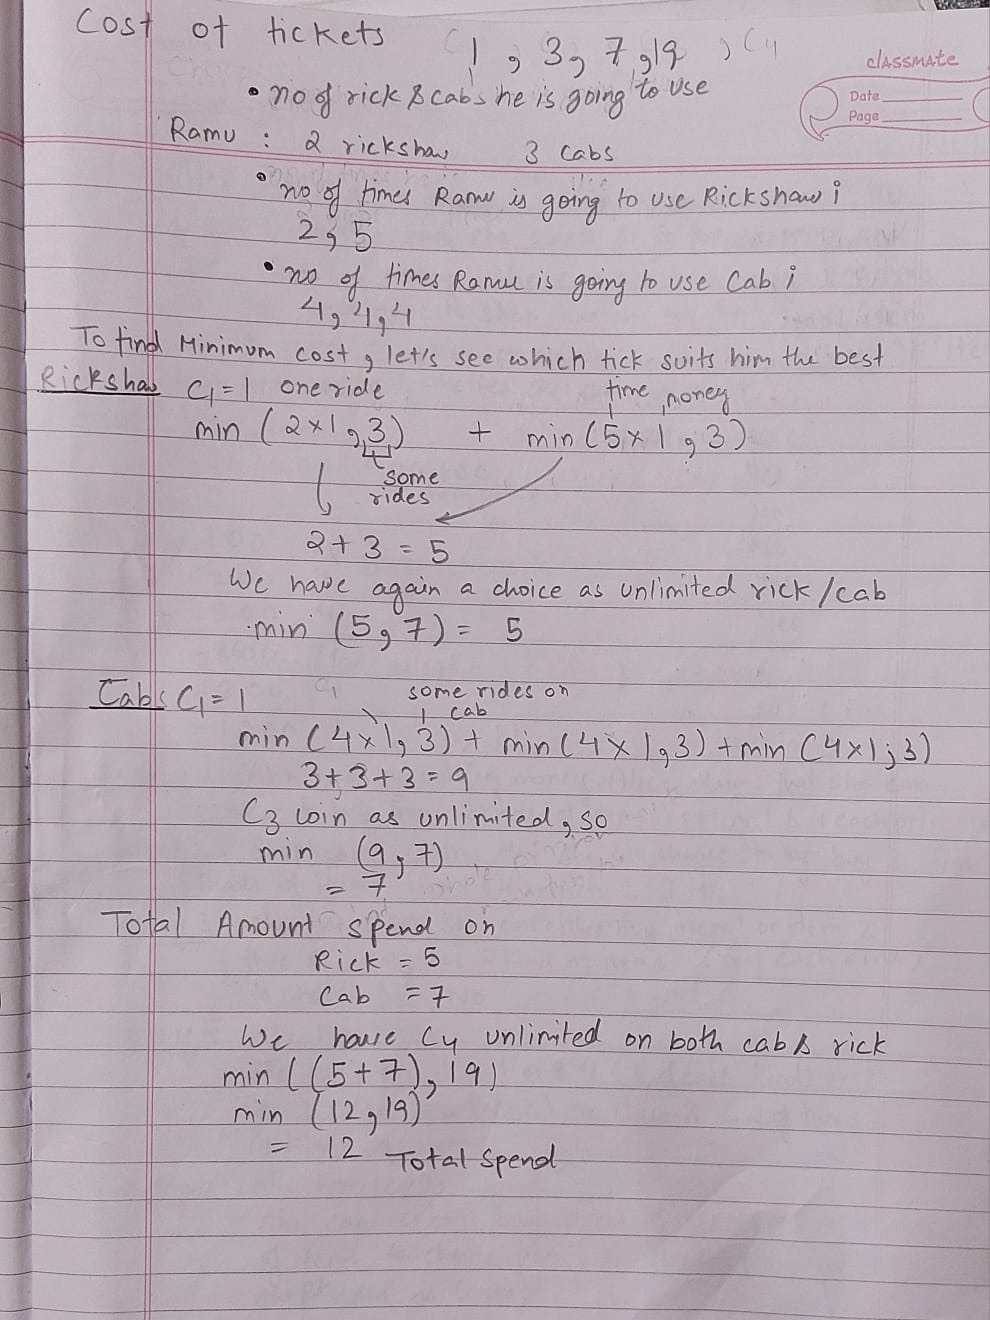 Cost of tickets
1, 3, 7, 19, C4
classmate
Date
Page
• no of rick & cabs he is going to use
Ramu : 2 rickshaw 3 cabs
• no of times Ramu is going to use Rickshaw i
2, 5
• no of times Ramu is going to use Cab i
4, 4, 4
To find Minimum cost, let's see which tick suits him the best
Rickshaw C1 = 1 one ride time, money
min (2×1, 3) + min (5×1, 3)
some
rides
2 + 3 = 5
We have again a choice as unlimited rick/cab
min (5, 7) = 5
Cabs C1 = 1 some rides on
1 cab
min (4×1, 3) + min (4×1, 3) + min (4×1, 3)
3+3+3 = 9
C3 coin as unlimited, so
min (9, 7)
= 7
Total Amount spend on
Rick = 5
Cab = 7
We have C4 unlimited on both cab & rick
min ((5+7), 19)
min (12, 19)
= 12 Total Spend